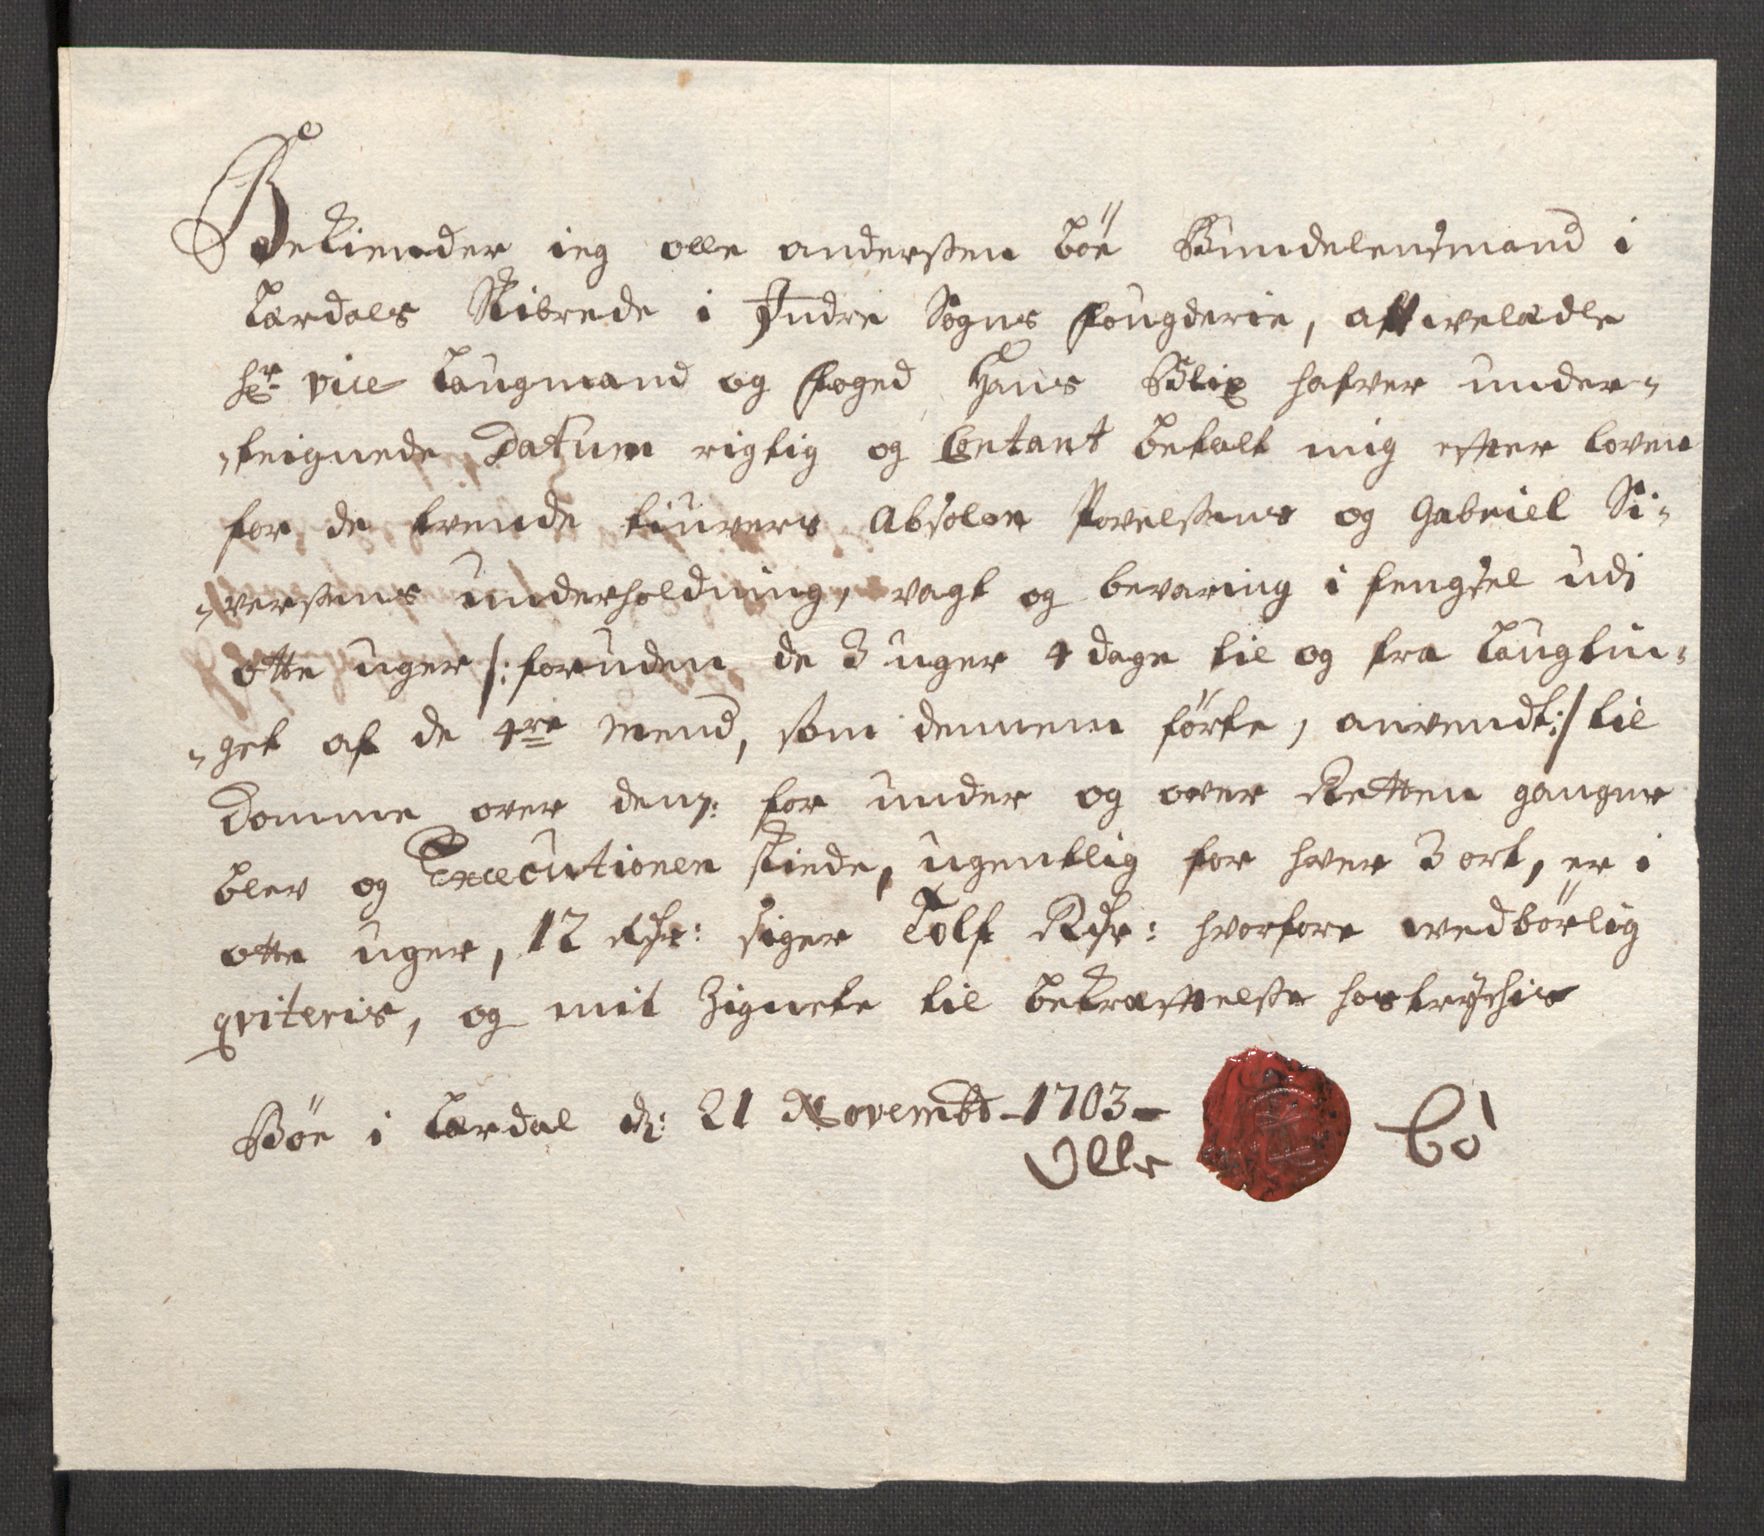 Bekiender ieg olle anderssen böe Bundelensmand i
Lærdals Skibrede i Indre Sogns fougderie, att welædle
Hr vice Laugmand og foged Hans Blix hafver under-
-teignede Datum rigtig og Contant betalt mig efter loven
for de tvende tiuvers Absolon Povelssens og Gabriel Si-
-verssens underholdning, vagt og bevaring i fengsel udi
otte uger /: foruden de 3 uger 4 dage til og fra Laugtin-
-get af de 4re mend, som dennem förte, anvendt :/ til
Domme over denn: for under og over Retten gangne
blev og Executionen skiede, ugentlig for hver 3 ort, er i
otte uger, 12 Rdr: siger Tolf Rdr: hvorfore wedbörlig
qviteris, og mit Zignete til bekræftelsse hostrÿchis
Böe i Lærdal d: 21 Novembr 1703
Olle Bö